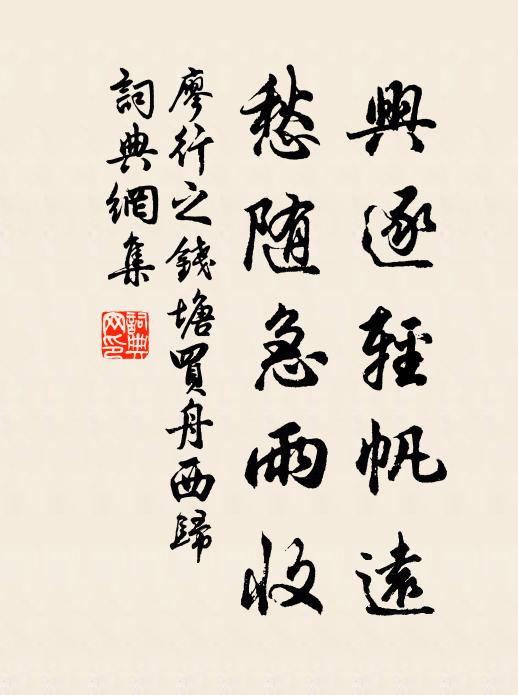 興逐輕帆遠
愁随急雨收
廖行之錢塘買舟西歸
詞典網集
詞典网印